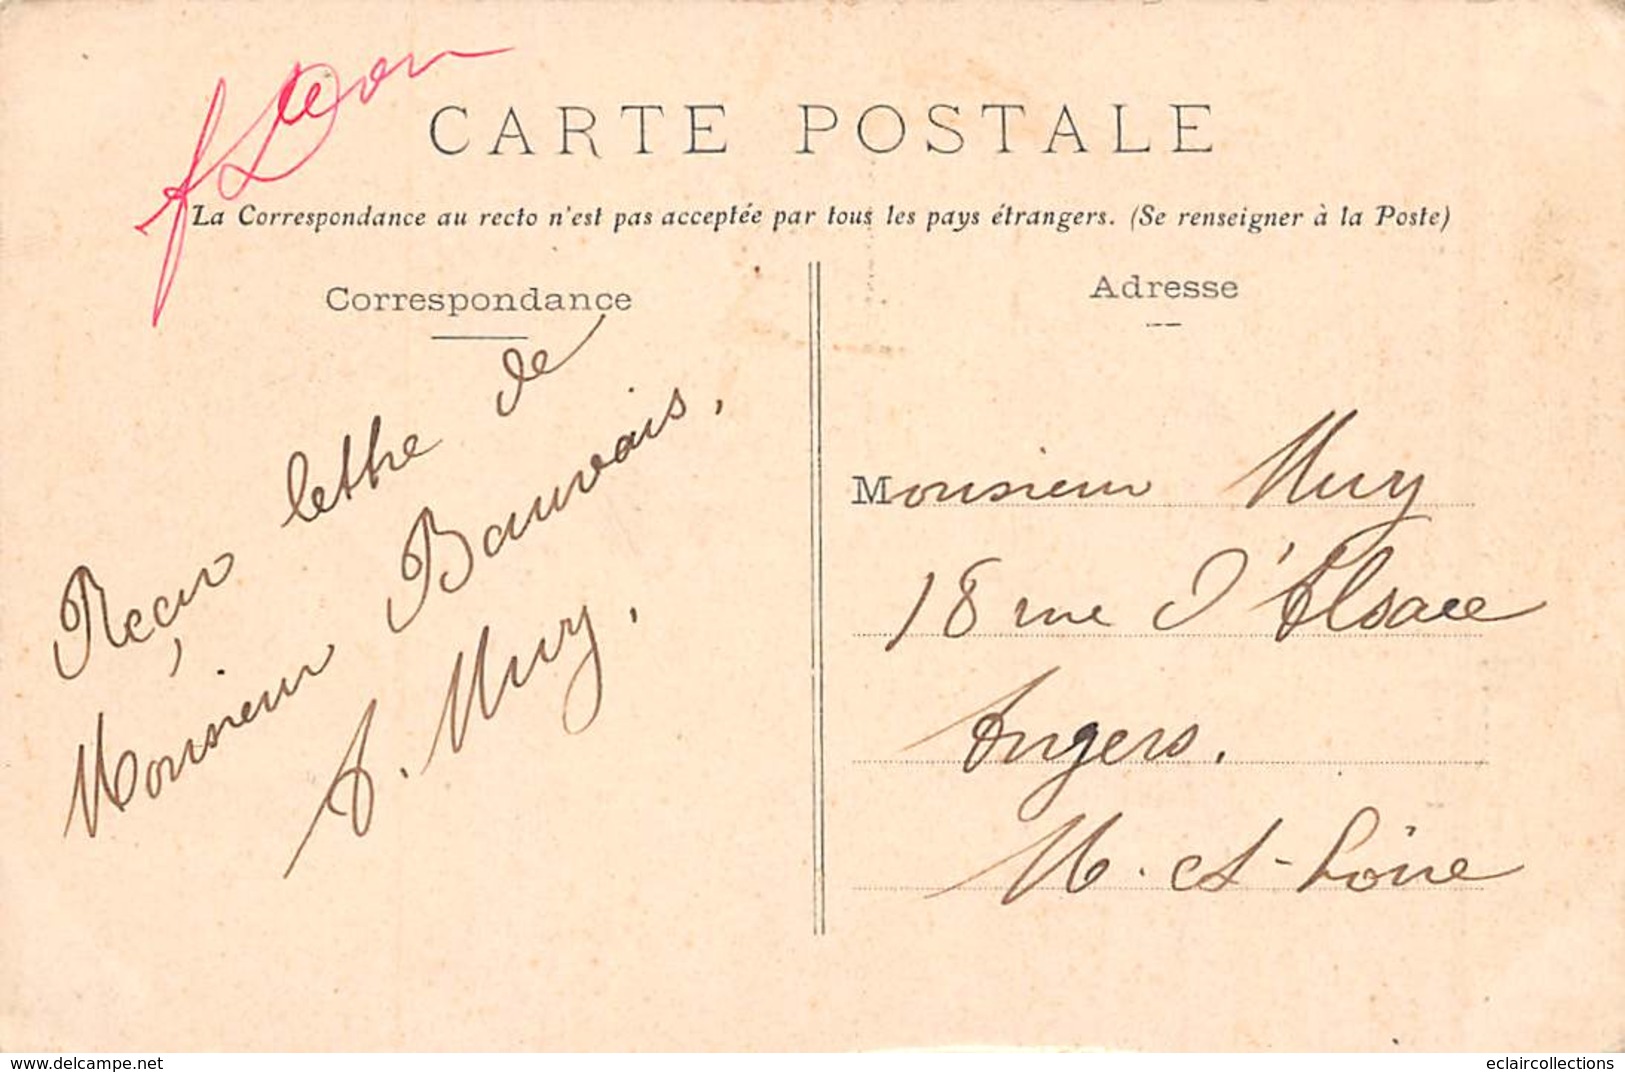 CARTE POSTALE
La Correspondance au recto n'est pas acceptée par tous les pays étrangers. (Se renseigner à la Poste)
Correspondance
Reçu lettre de
Monsieur Bauvais,
A. Mury,
Adresse
Monsieur Mury
18 rue d'Alsace
Angers.
M. et-Loire
www.delcampe.net
eclaircollections